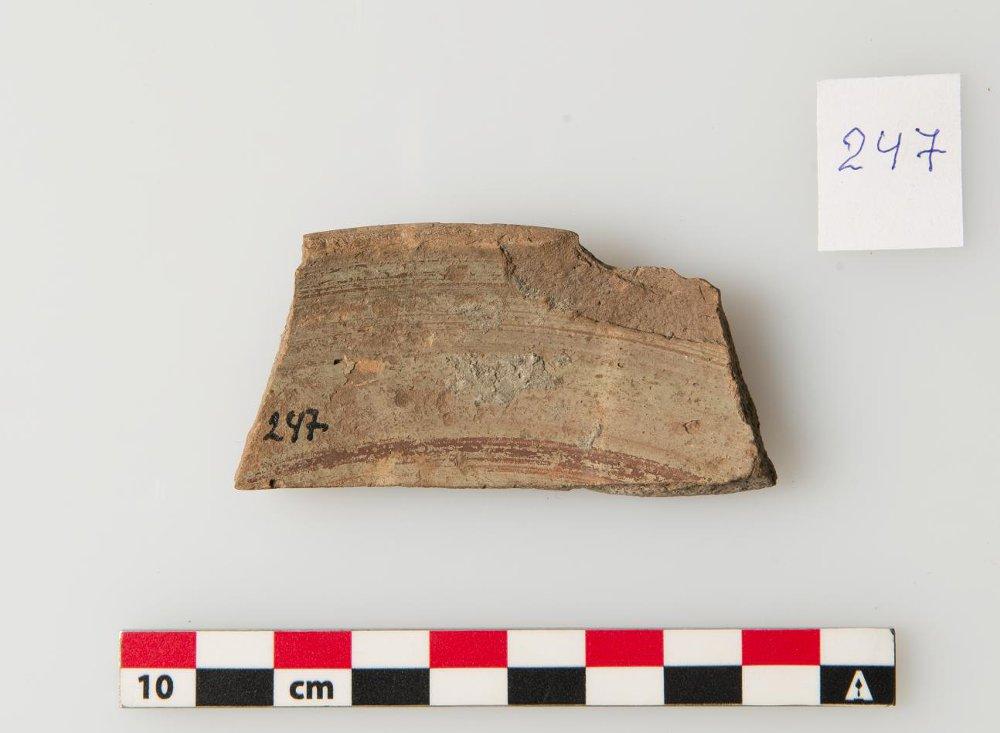 247
247
10 cm